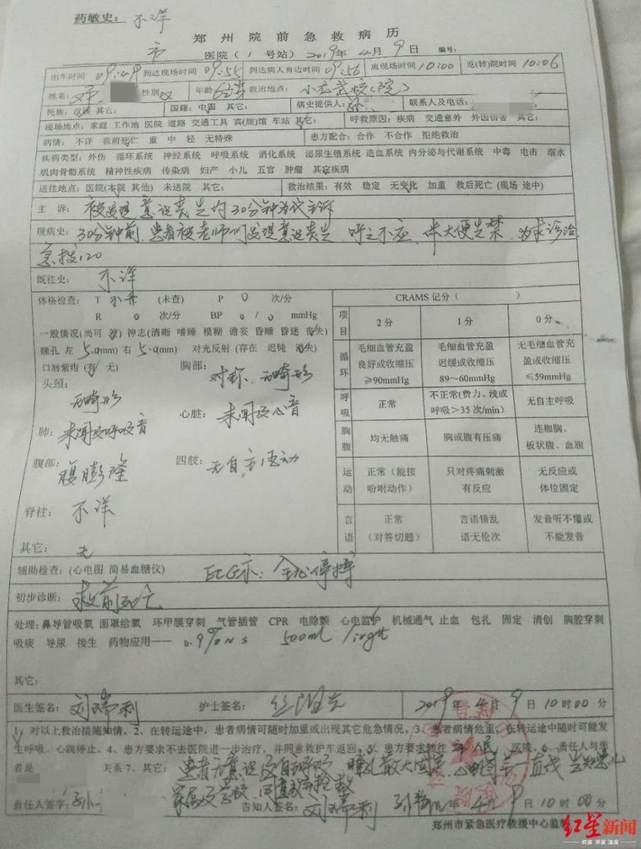 药敏史：不详
郑州院前急救病历
市 医院（1号站）2019年4月9日 编号：
出车时间09:49到达现场时间09:55到达病人身边时间09:56离现场时间10:00返(转)院时间10:06
姓名： 性别 年龄 救治地点：
民族： 其它： 国籍：中国 其它： 病史提供人： 联系人及电话：
现场地点：家庭 工作地 医院 道路 交通工具 宾(旅)馆 车站 其它： 呼救原因：疾病 交通意外 外因伤害 其它：
病情：不详 救前死亡 重 中 轻 无特殊 患方配合：合作 不合作 拒绝救治
疾病类型：外伤 循环系统 神经系统 呼吸系统 消化系统 泌尿生殖系统 造血系统 内分泌与代谢系统 中毒 电击 溺水
肌肉骨骼系统 精神性疾病 传染病 妇产 小儿 五官 肿瘤 其它疾病
送往地点：医院(本院 其他) 未送院 其它： 救治结果：有效 稳定 无变化 加重 救后死亡 (现场 途中)
主诉：被发现意识丧失约30分钟为代主诉
现病史：30分钟前，患者被老师们发现意识丧失，呼之不应，伴大便失禁，为求诊治
急拨120
既往史：不详
体格检查：T 不升 (未查) P 0 次/分 CRAMS记分（ ）
R 0 次/分 BP 0/0 mmHg
项目 2分 1分 0分
一般情况(尚可 差) 神志(清晰 嗜睡 模糊 谵妄 昏睡 昏迷 丧失)
瞳孔 左5.0(mm) 右5.0(mm) 对光反射 (存在 迟钝 消失)
口唇紫绀(有 无) 胸部：对称、无畸形
头颈：无畸形
循环 毛细血管充盈良好或收缩压≥90mmHg 毛细血管充盈迟缓或收缩压89～60mmHg 无毛细血管充盈或收缩压≤59mmHg
心脏：未闻及心音
肺：未闻及呼吸音
呼吸 正常 不正常(费力、浅或呼吸＞35次/min) 无自主呼吸
胸腹 均无触痛 胸或腹有压痛 连枷胸、板状腹、血腹
腹部：腹膨隆 四肢：无自主活动
运动 正常（能按吩咐动作） 只对疼痛刺激有反应 无反应或体位固定
脊柱：不详
言语 正常（对答切题） 言语错乱语无伦次 发音听不懂或不能发音
其它：无
辅助检查：(心电图 简易血糖仪) ECG示：全心停搏
初步诊断：救前死亡
处理：鼻导管吸氧 面罩给氧 环甲膜穿刺 气管插管 CPR 电除颤 心电监护 机械通气 止血 包扎 固定 清创 胸腔穿刺
吸痰 导尿 接生 药物应用—— 0.9%NS 500ml
医生签名： 护士签名： 2019年4月9日10时00分
1、对以上救治措施知情。2、在转运途中，患者病情可随时加重或出现其它危急情况。3、患者病情危重，在转运途中随时可能发
生呼吸、心跳停止。4、患方要求不去医院进一步治疗，并同意救护车返回。5、患方要求转往 医院。6、责任人与患
者是 关系。7、患者无意识及自主呼吸，瞳孔散大固定，心电图示一直线
责任人签字： 告知人签名： 年4月9日10时00分
郑州市紧急医疗救援中心监制
红星新闻